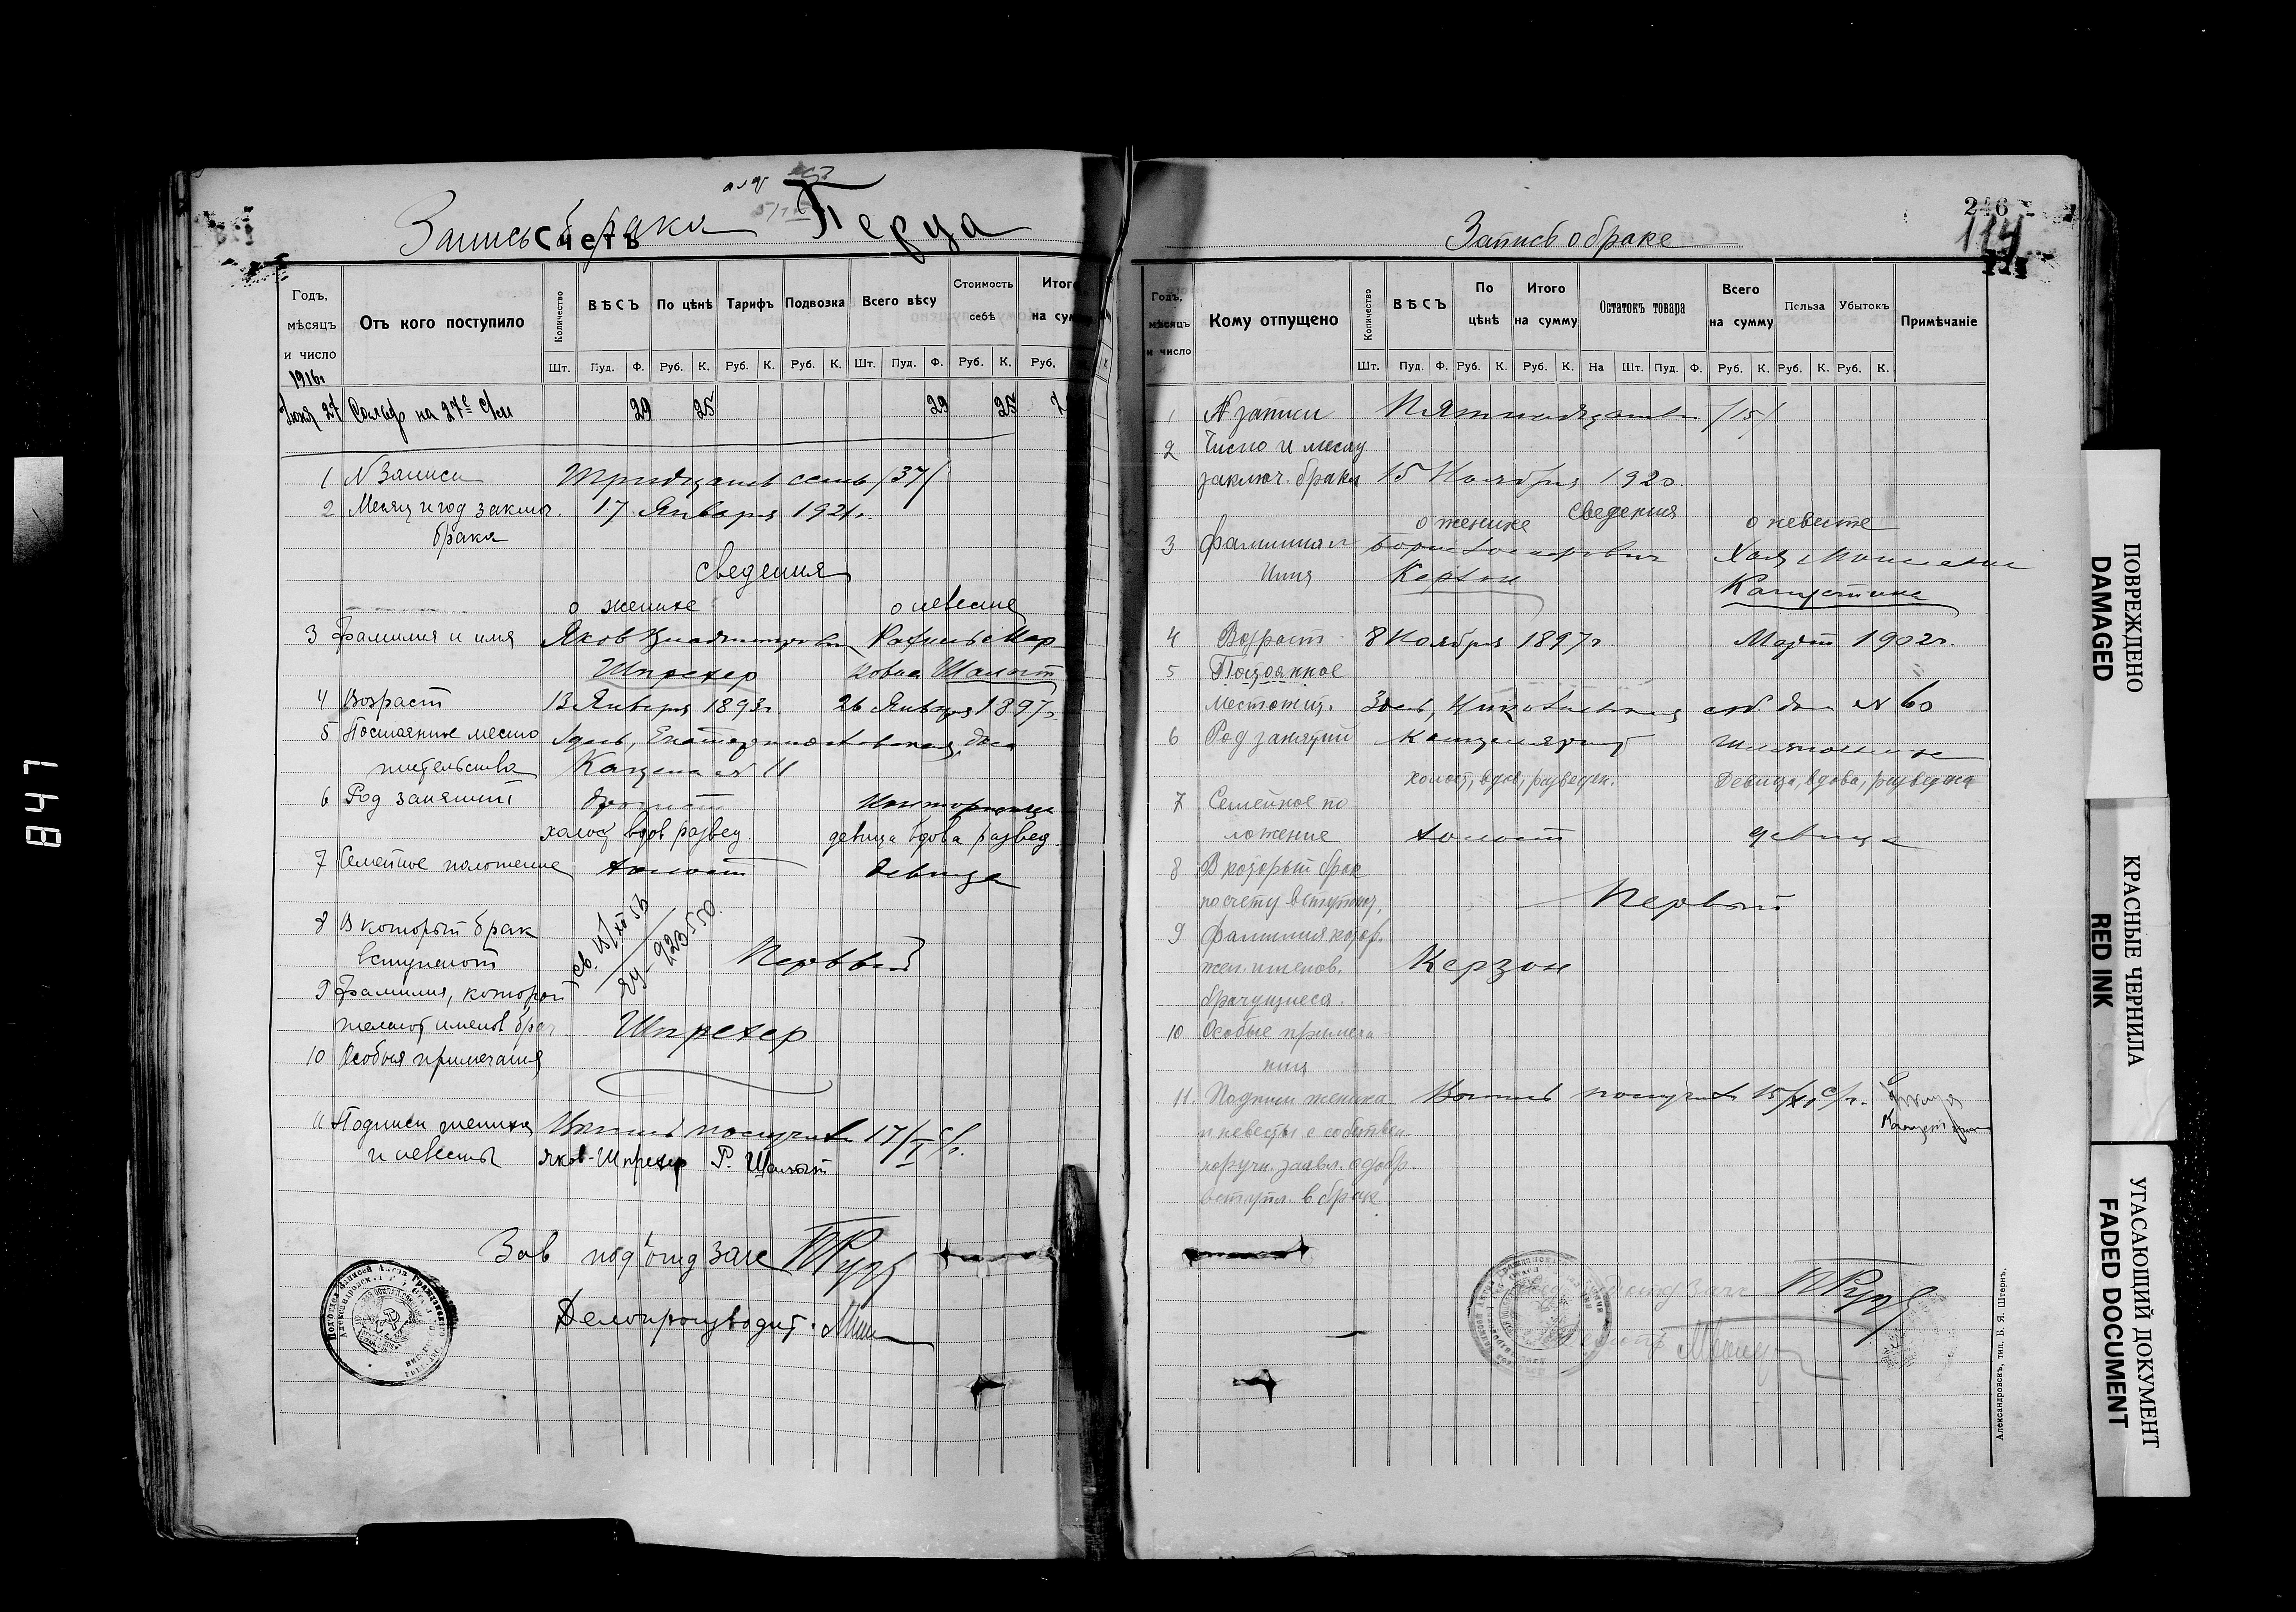 Запись брака Перца
Счетъ
Годъ, мѣсяцъ и число
Отъ кого поступило
Количество
ВѢСЪ
По цѣнѣ
Тарифъ
Подвозка
Всего вѣсу
Стоимость себѣ
Итого на сумму
Шт. Пуд. Ф. Руб. К. Руб. К. Руб. К. Шт. Пуд. Ф. Руб. К. Руб.
1916г
Июня 27 на 27е с/м 29 25 29 25 7
1 N Записи Тридцать семь /37/
2 Месяц и год заключ. 17 Января 1921г.
брака
Сведения
о женихе о невесте
3 Фамилия и имя Яков Рахиль Мар-
Шпрехер ковна Шамот
4 Возраст 13 Января 1893г 26 Января 1897г
5 Постоянное место Здесь, Екатеринославская, дом
жительства Кацена N 11
6 Род занятий Конторщица
холост вдов развед. девица вдова развед.
7 Семейное положение холост девица
8 В который брак
вступают Первый
св. 15/XII 56
ЯУ - 923550.
9 Фамилия, которой
желают именов. брач. Шпрехер
10 Особыя примечания
11 Подписи жениха Копию получили 17/I с/г.
и невесты Яков Шпрехер Р. Шамот
Зав под'отд Загс
Делопроизводит.
Подотдел Записей Актов Гражданского
246
114
Запись о браке
Годъ, мѣсяцъ и число
Кому отпущено
Количество
ВѢСЪ
По цѣнѣ
Итого на сумму
Остатокъ товара
Всего на сумму
Польза
Убытокъ
Примѣчаніе
Шт. Пуд. Ф. Руб. К. Руб. К. На Шт. Пуд. Ф. Руб. К. Руб. К. Руб. К.
1 N записи Пятнадцать /15/
2 Число и месяц
заключ. брака 15 Ноября 1920.
Сведения
о женихе о невесте
3 Фамилия и Борис Хая
Имя Керзон Капустина
4 Возраст 8 Ноября 1897г. Март 1902г.
5 Постоянное
местожит. Здесь, Николаевская соб. дом N 60
6 Род занятий Канцелярист
холост, вдов, разведен. Девица, вдова, разведена
7 Семейное по
ложение холост девица
8 В который брак
по счету вступают. Первый
9 Фамилия котор.
жел. именов. Керзон
брачущиеся.
10 Особые примеча
ния
11. Подписи жениха Копию получил 15/XI с/г.
и невесты о собствен
норучн. заявл. о добр.
вступл. в брак
Александровскъ, тип. Б. Я. Штернъ.
847
ПОВРЕЖДЕНО
DAMAGED
КРАСНЫЕ ЧЕРНИЛА
RED INK
УГАСАЮЩИЙ ДОКУМЕНТ
FADED DOCUMENT